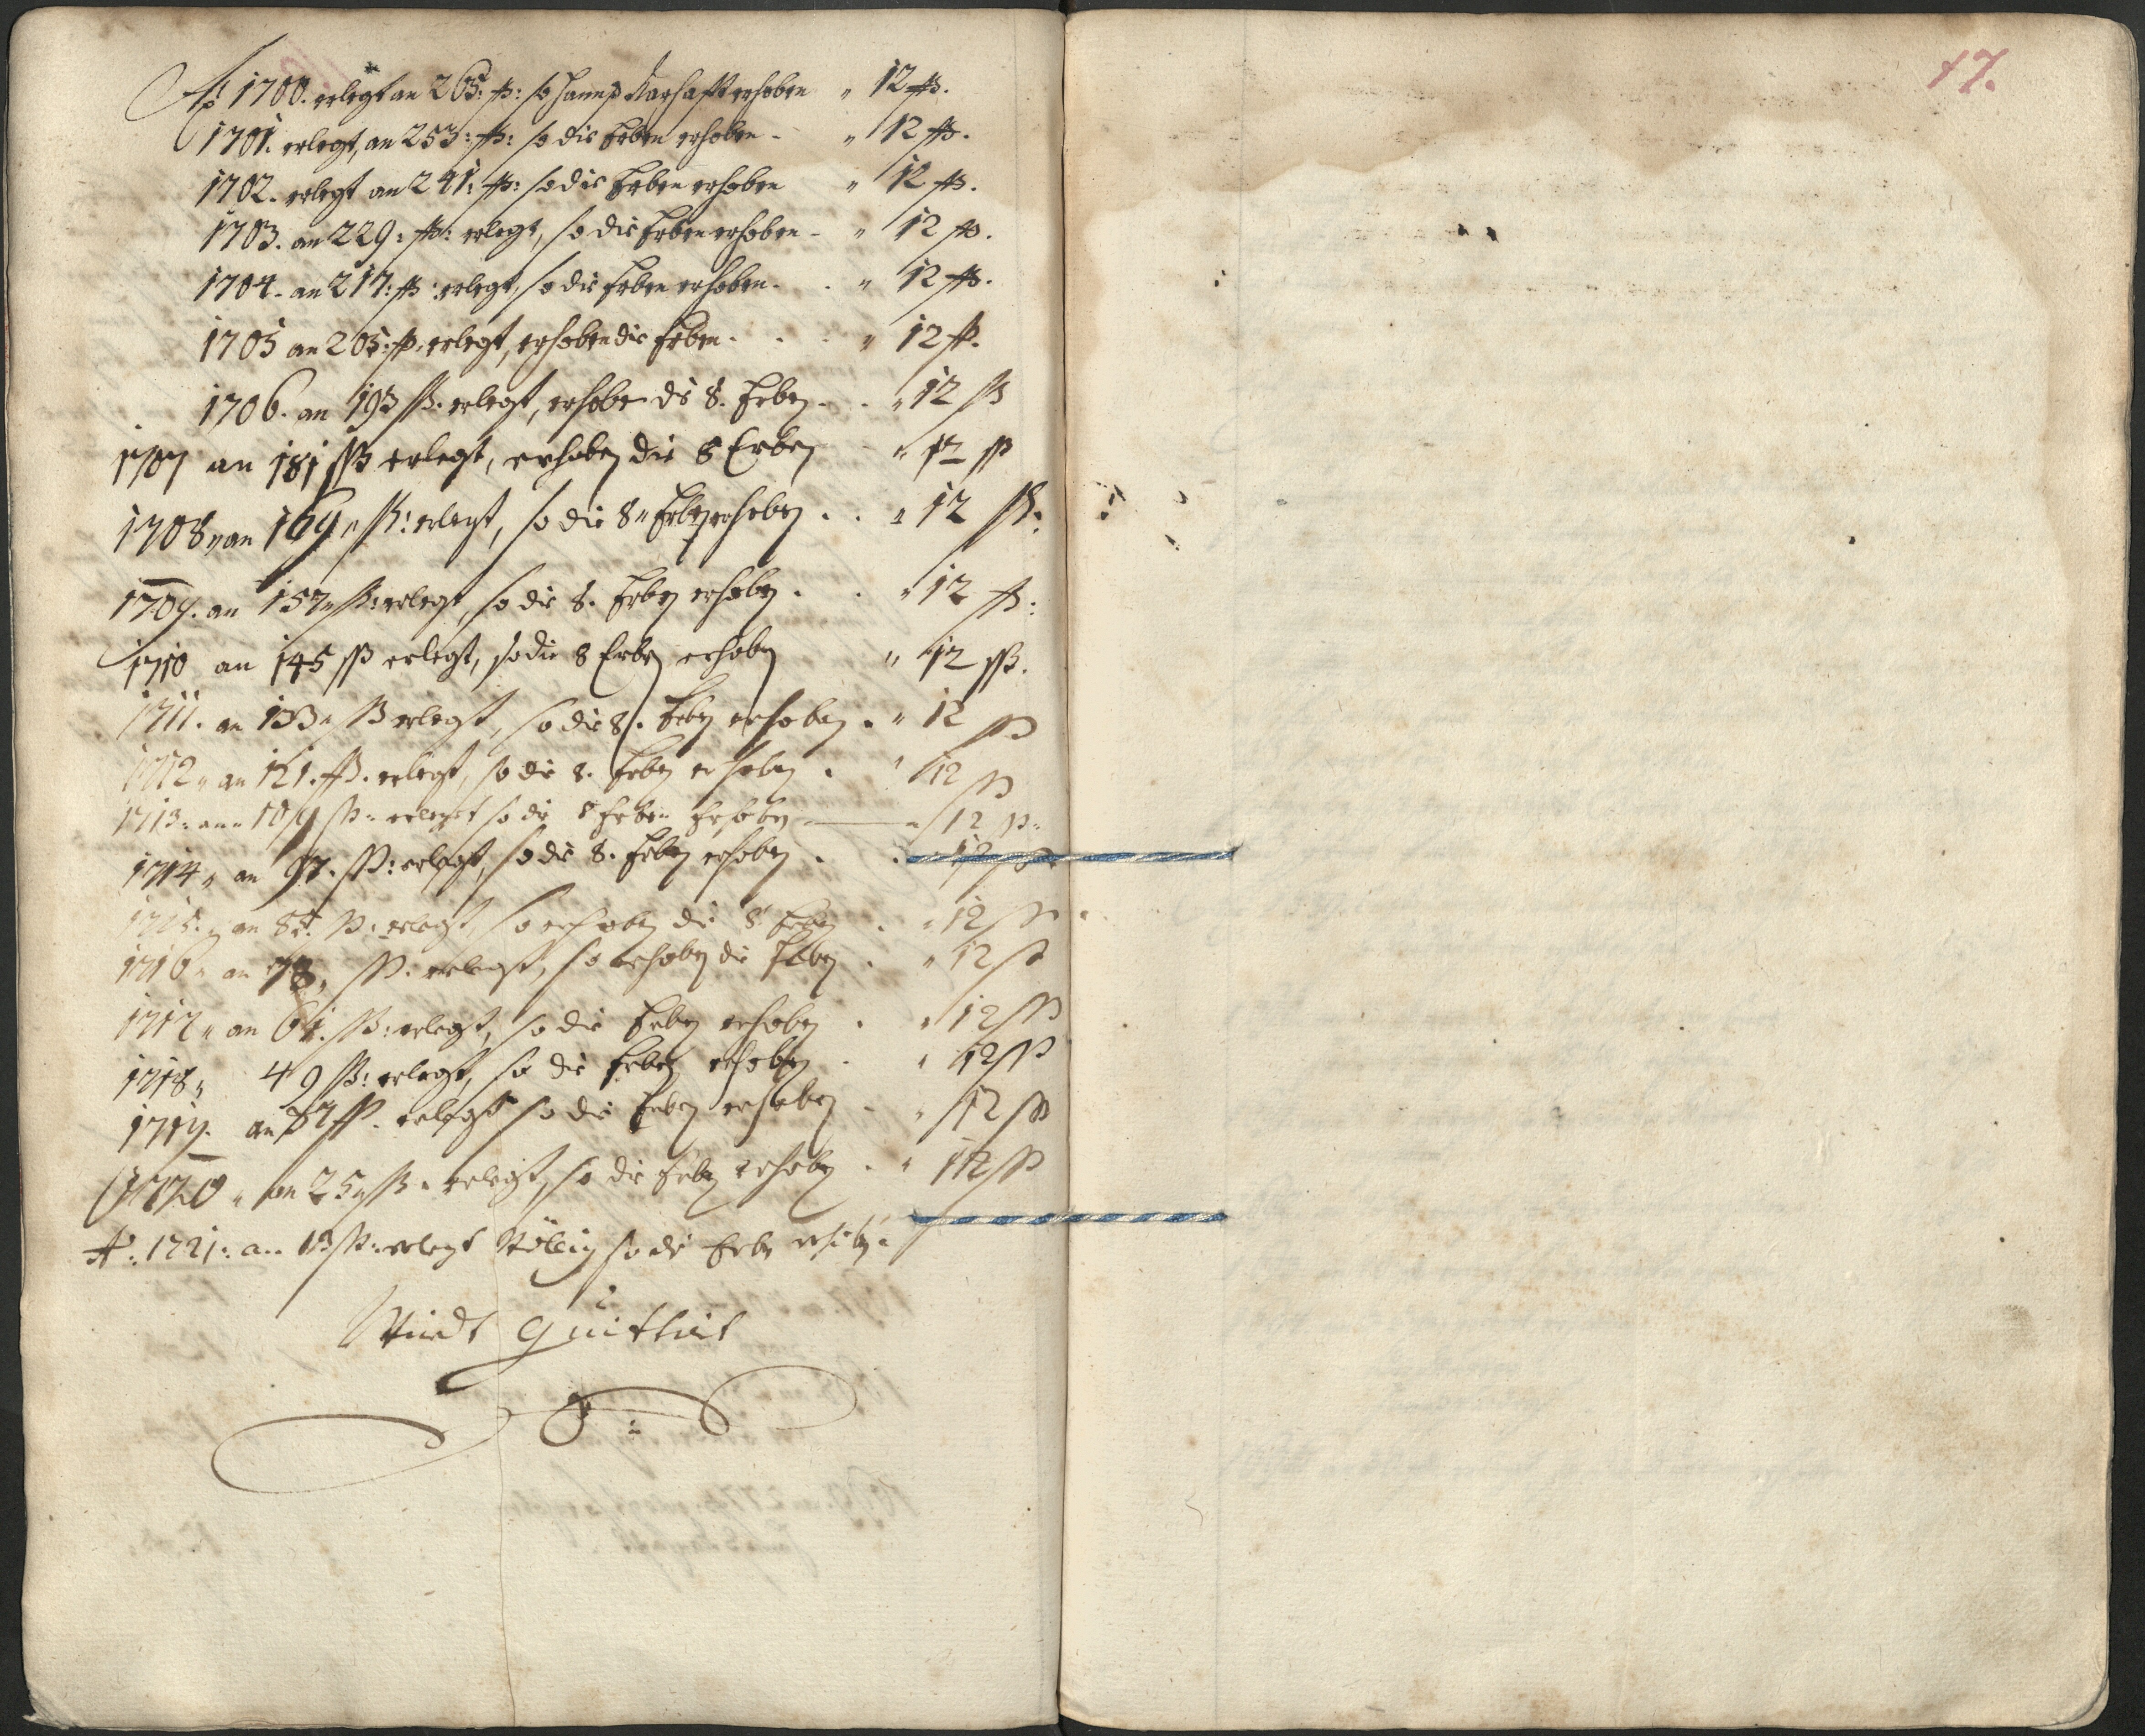 Aō 1700. erlegt an 265: ß: so Hannß Karhafft erhoben " 12 ß.
1701. erlegt, an 253: ß: so die Erben erhoben - " 12 ß.
1702. erlegt an 241: ß: so die Erben erhoben " 12 ß.
1703. an 229: ß: erlegt, so die Erben erhoben - " 12 ß.
1704. an 217: ß: erlegt, so die Erben erhoben. . " 12 ß.
1705 an 205: ß: erlegt, erhoben die Erben . . . " 12 ß.
1706. an 193 ß. erlegt, erhoben die 8. Erben . . " 12 ß
1707 an 181 ß erlegt, erhoben die 8 Erben " 12 ß
1708 " an 169 " ß: erlegt, so die 8 " Erben erhoben . . " 12 ß:
1709. an 157 " ß: erlegt, so die 8. Erben erhoben . . " 12 ß:
1710 an 145 ß erlegt, so die 8 Erben erhoben " 12 ß.
1711. an 133 " ß erlegt, so die 8. Erben erhoben . " 12 ß
1712 " an 121. ß. erlegt, so die 8. Erben erhoben . " 12 ß
1713: an " 109 ß " erleget so die 8 Erben Erhoben — " 12 ß "
1714 " an 97. ß: erlegt, so die 8. Erben erhoben . . 12 ß
1715. " an 85. ß: erlegt, so erhoben die 8 Erben . " 12 ß
1716 " an 73 " ß. erlegt, so erhoben die Erben . " 12 ß
1717 " an 61. ß: erlegt, so die Erben erhoben . " 12 ß
1718 " 49 ß: erlegt, so die Erben erhoben . " 12 ß
1719. an 37 ß. erlegt so die Erben erhoben - " 12 ß
1720 " an 25 " ß " erlegt, so die Erben erhoben . " 12 ß
Aō: 1721: an 13 ß: erlegt Völlig so die Erben erhoben.
Wird quittirt
17.